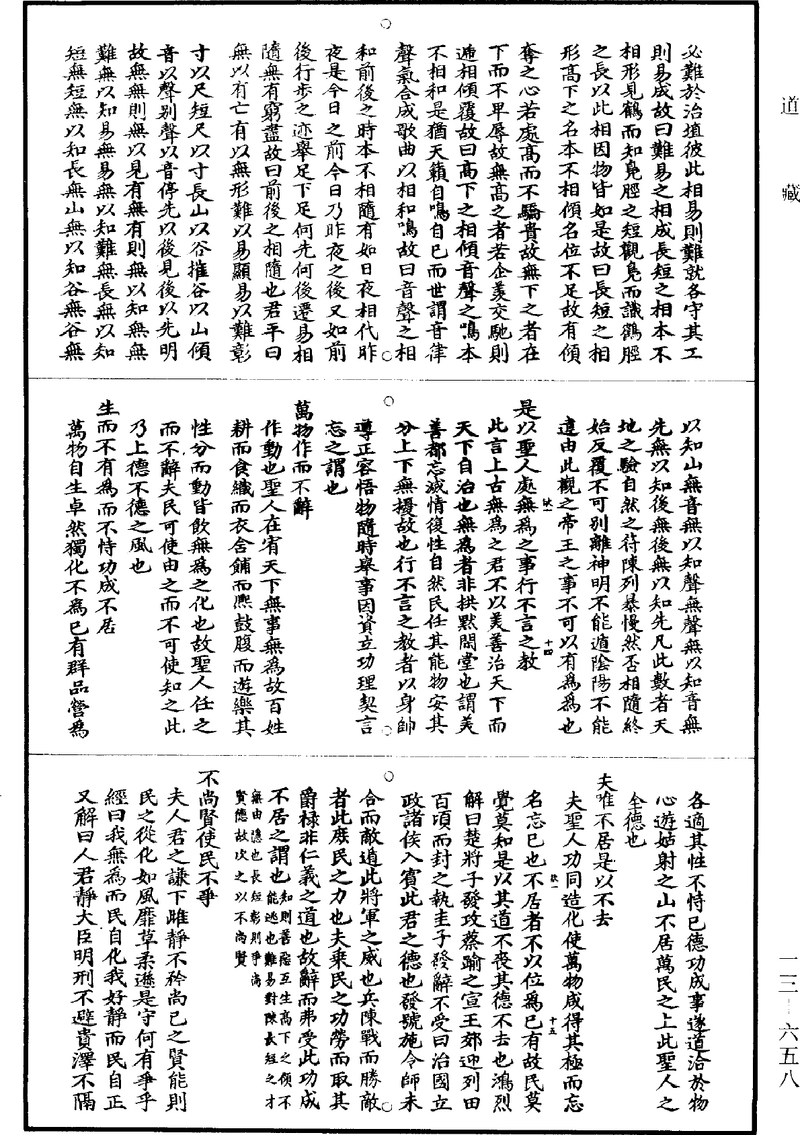 道藏
必難於治埴彼此相易則難就各守其工
則易成故曰難易之相成長短之相本不
相形見鶴而知鳧脛之短觀鳧而識鶴脛
之長以此相因物皆如是故曰長短之相
形高下之名本不相傾名位不足故有傾
奪之心若處高而不驕貴故無下之者在
下而不卑辱故無高之者若企羨交馳則
遞相傾覆故曰高下之相傾音聲之鳴本
不相和是猶天籟自鳴自已而世謂音律
聲氣合成歌曲以相和鳴故曰音聲之相
和前後之時本不相隨有如日夜相代昨
夜是今日之前今日乃昨夜之後又如前
後行步之迹舉足下足何先何後遷易相
隨無有窮盡故曰前後之相隨也君平曰
無以有亡有以無形難以易顯易以難彰
寸以尺短尺以寸長山以谷摧谷以山傾
音以聲别聲以音停先以後見後以先明
故無無則無以見有無有則無以知無無
難無以知易無易無以知難無長無以知
短無短無以知長無山無以知谷無谷無
以知山無音無以知聲無聲無以知音無
先無以知後無後無以知先凡此數者天
地之驗自然之符陳列暴慢然否相隨終
始反覆不可别離神明不能遁陰陽不能
違由此觀之帝王之事不可以有為為也
是以聖人處無為之事行不言之教
此言上古無為之君不以美善治天下而
天下自治也無為者非拱默閒堂也謂美
善都忘滅情復性自然民任其能物安其
分上下無擾故也行不言之教者以身帥
導正容悟物隨時舉事因資立功理契言
忘之謂也
萬物作而不辭
作動也聖人在宥天下無事無為故百姓
耕而食織而衣含餔而熙鼓腹而遊樂其
性分而動皆飲無為之化也故聖人任之
而不辭夫民可使由之而不可使知之此
乃上德不德之風也
生而不有為而不恃功成不居
萬物自生卓然獨化不為已有群品營為
各適其性不恃已德功成事遂道洽於物
心遊姑射之山不居萬民之上此聖人之
全德也
夫唯不居是以不去
夫聖人功同造化使萬物咸得其極而忘
名忘已也不居者不以位為已有故民莫
覺莫知是以其道不喪其德不去也鴻烈
解曰楚將子發攻蔡踰之宣王郊迎列田
百頃而封之執圭子發辭不受曰治國立
政諸侯入賓此君之德也發號施令師未
合而敵遁此將軍之威也兵陳戰而勝敵
者此庶民之力也夫乘民之功勞而取其
爵祿非仁義之道也故辭而弗受此功成
不居之謂也知則善惡互生高下之傾不
能逃也難易對陳長短之才
無由隱也長短彰則爭尚
賢德故次之以不尚賢
不尚賢使民不爭
夫人君之謙下雌靜不矜尚已之賢能則
民之從化如風靡草柔遜是守何有爭乎
經曰我無為而民自化我好靜而民自正
又解曰人君靜大臣明刑不避貴澤不隔
十四
十五
一三—六五八